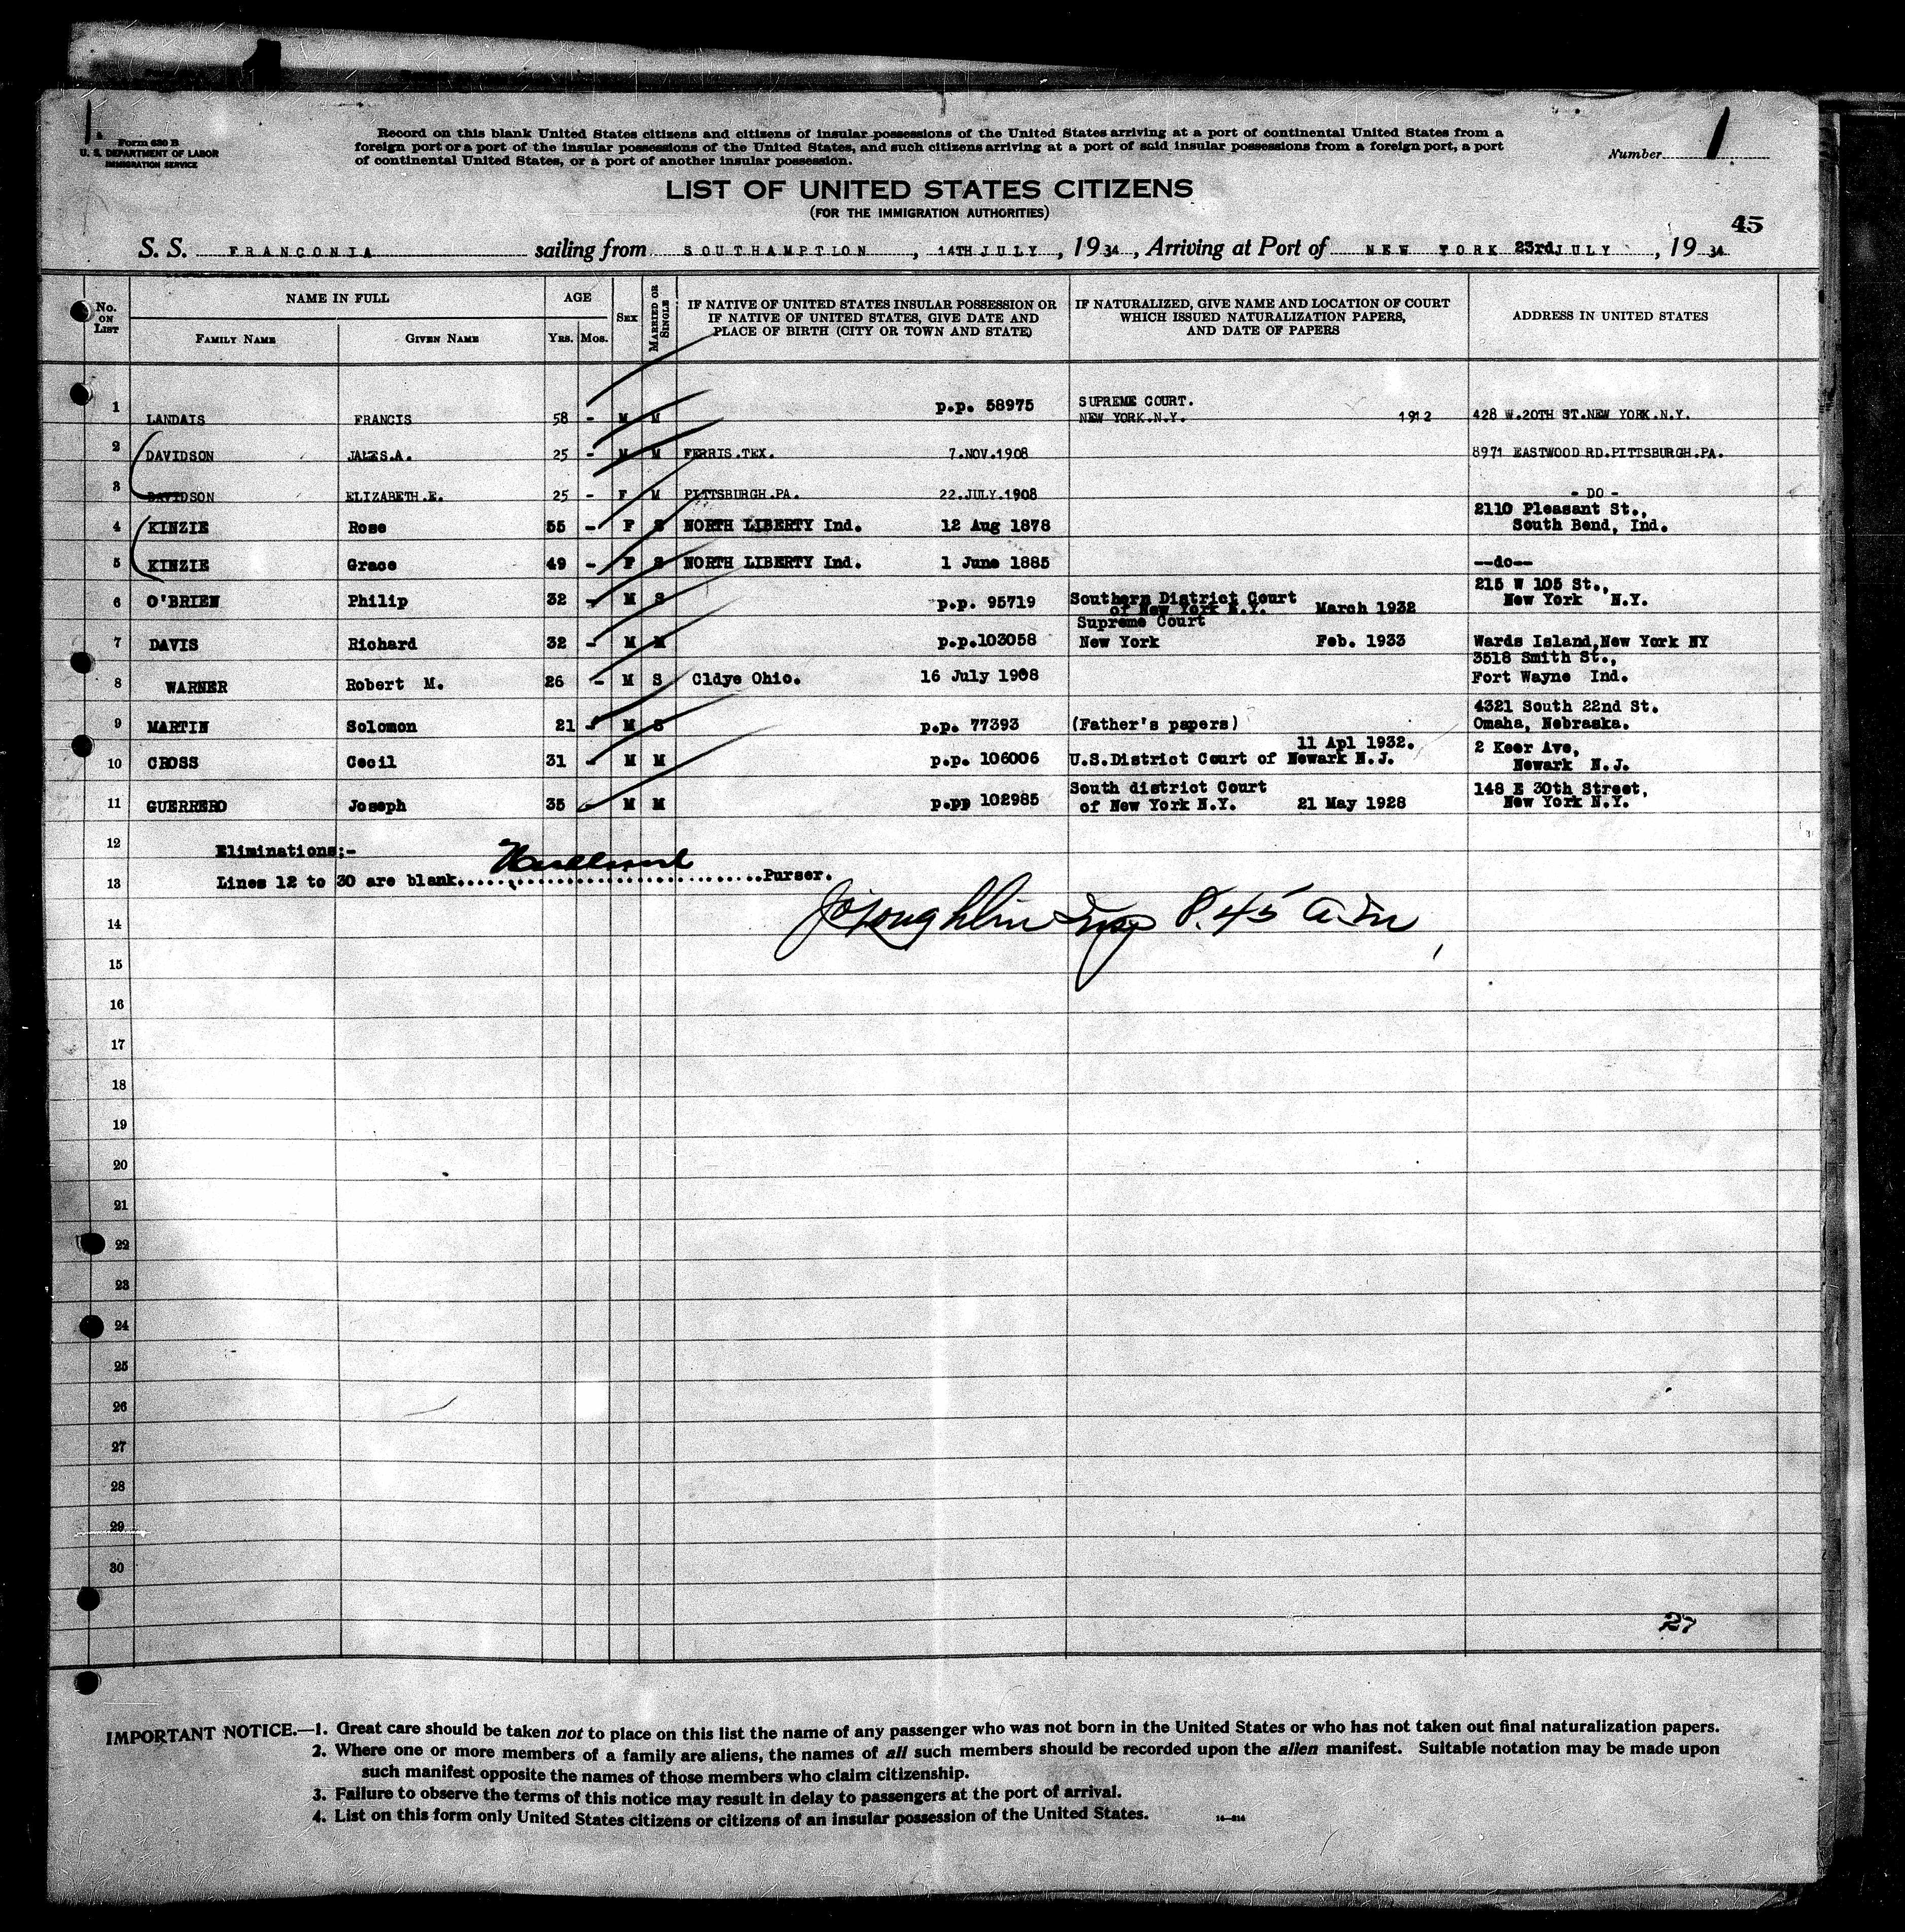 1
Form 630 B
U. S. DEPARTMENT OF LABOR
IMMIGRATION SERVICE
Record on this blank United States citizens and citizens of insular possessions of the United States arriving at a port of continental United States from a
foreign port or a port of the insular possessions of the United States, and such citizens arriving at a port of said insular possessions from a foreign port, a port
of continental United States, or a port of another insular possession.
Number 1
LIST OF UNITED STATES CITIZENS
(FOR THE IMMIGRATION AUTHORITIES)
45
S. S. FRANCONIA sailing from SOUTHAMPTION, 14TH JULY, 1934, Arriving at Port of NEW YORK 23rd JULY, 1934
No. ON LIST
NAME IN FULL
FAMILY NAME
GIVEN NAME
AGE
YRS. MOS.
SEX
MARRIED OR SINGLE
IF NATIVE OF UNITED STATES INSULAR POSSESSION OR
IF NATIVE OF UNITED STATES, GIVE DATE AND
PLACE OF BIRTH (CITY OR TOWN AND STATE)
IF NATURALIZED, GIVE NAME AND LOCATION OF COURT
WHICH ISSUED NATURALIZATION PAPERS,
AND DATE OF PAPERS
ADDRESS IN UNITED STATES
1 LANDAIS FRANCIS 58 - M M p.p. 58975 SUPREME COURT.
NEW YORK.N.Y. 1912 428 W.20TH ST.NEW YORK.N.Y.
2 DAVIDSON JAMES.A. 25 - M M FERRIS.TEX. 7.NOV.1908 8971 EASTWOOD RD.PITTSBURGH.PA.
3 DAVIDSON ELIZABETH.E. 25 - F M PITTSBURGH.PA. 22.JULY.1908 - DO -
4 KINZIE Rose 55 - F S NORTH LIBERTY Ind. 12 Aug 1878 2110 Pleasant St.,
South Bend, Ind.
5 KINZIE Grace 49 - F S NORTH LIBERTY Ind. 1 June 1885 --do--
6 O'BRIEN Philip 32 - M S p.p. 95719 Southern District Court
of New York N.Y. March 1932 215 W 105 St.,
New York N.Y.
7 DAVIS Richard 32 - M M p.p.103058 Supreme Court
New York Feb. 1933 Wards Island,New York NY
8 WARNER Robert M. 26 - M S Cldye Ohio. 16 July 1908 3518 Smith St.,
Fort Wayne Ind.
9 MARTIN Solomon 21 - M S p.p. 77393 (Father's papers) 4321 South 22nd St.
Omaha, Nebraska.
10 CROSS Cecil 31 - M M p.p. 106006 11 Apl 1932.
U.S.District Court of Newark N.J. 2 Keer Ave,
Newark N.J.
11 GUERRERO Joseph 35 - M M p.pp 102985 South district Court
of New York N.Y. 21 May 1928 148 E 30th Street,
New York N.Y.
12 Eliminations;-
13 Lines 12 to 30 are blank. Purser.
14 Insp 8.45 am
15
16
17
18
19
20
21
22
23
24
25
26
27
28
29
30
27
IMPORTANT NOTICE.—1. Great care should be taken not to place on this list the name of any passenger who was not born in the United States or who has not taken out final naturalization papers.
2. Where one or more members of a family are aliens, the names of all such members should be recorded upon the alien manifest. Suitable notation may be made upon
such manifest opposite the names of those members who claim citizenship.
3. Failure to observe the terms of this notice may result in delay to passengers at the port of arrival.
4. List on this form only United States citizens or citizens of an insular possession of the United States.
14—614